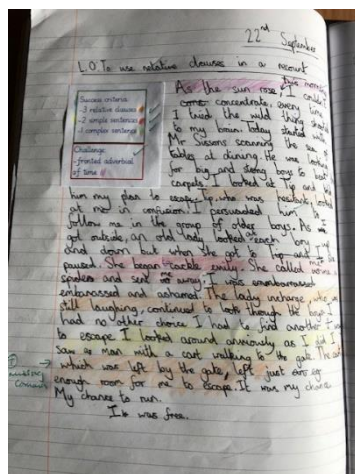 22nd September
L.O. To use relative clauses in a recount
Success criteria:
-3 relative clauses
-2 simple sentences
-1 complex sentence
Challenge:
-fronted adverbial
of time
As the sun rose this morning, I couldn't
concentrate, every time
I tried the wild thing
to my brain. Today started with
Mr Sissons scanning the sea of
faces at dining. He was looking
for big and strong boys to beat
carpets. I looked at Tip and told
him my plan to escape. Tip, who was resistant, looked
at me in confusion. I persuaded him to
follow me in the group of older boys. As we
got outside, an old lady looked each boy up
and down but when she got to Tip and I she
paused. She began cackle evily. She called me
spiders and sent me away. I was
embarassed and ashamed. The lady incharge, who was
still laughing, continued to look through the boys. I
had no other choice I had to find another
to escape. I looked around anxiously as I did I
saw as man with a cart walking to the gate. The cart
which was left by the gate, left just
enough room for me to escape. It was my chance.
My chance to run.
I was free.
missing